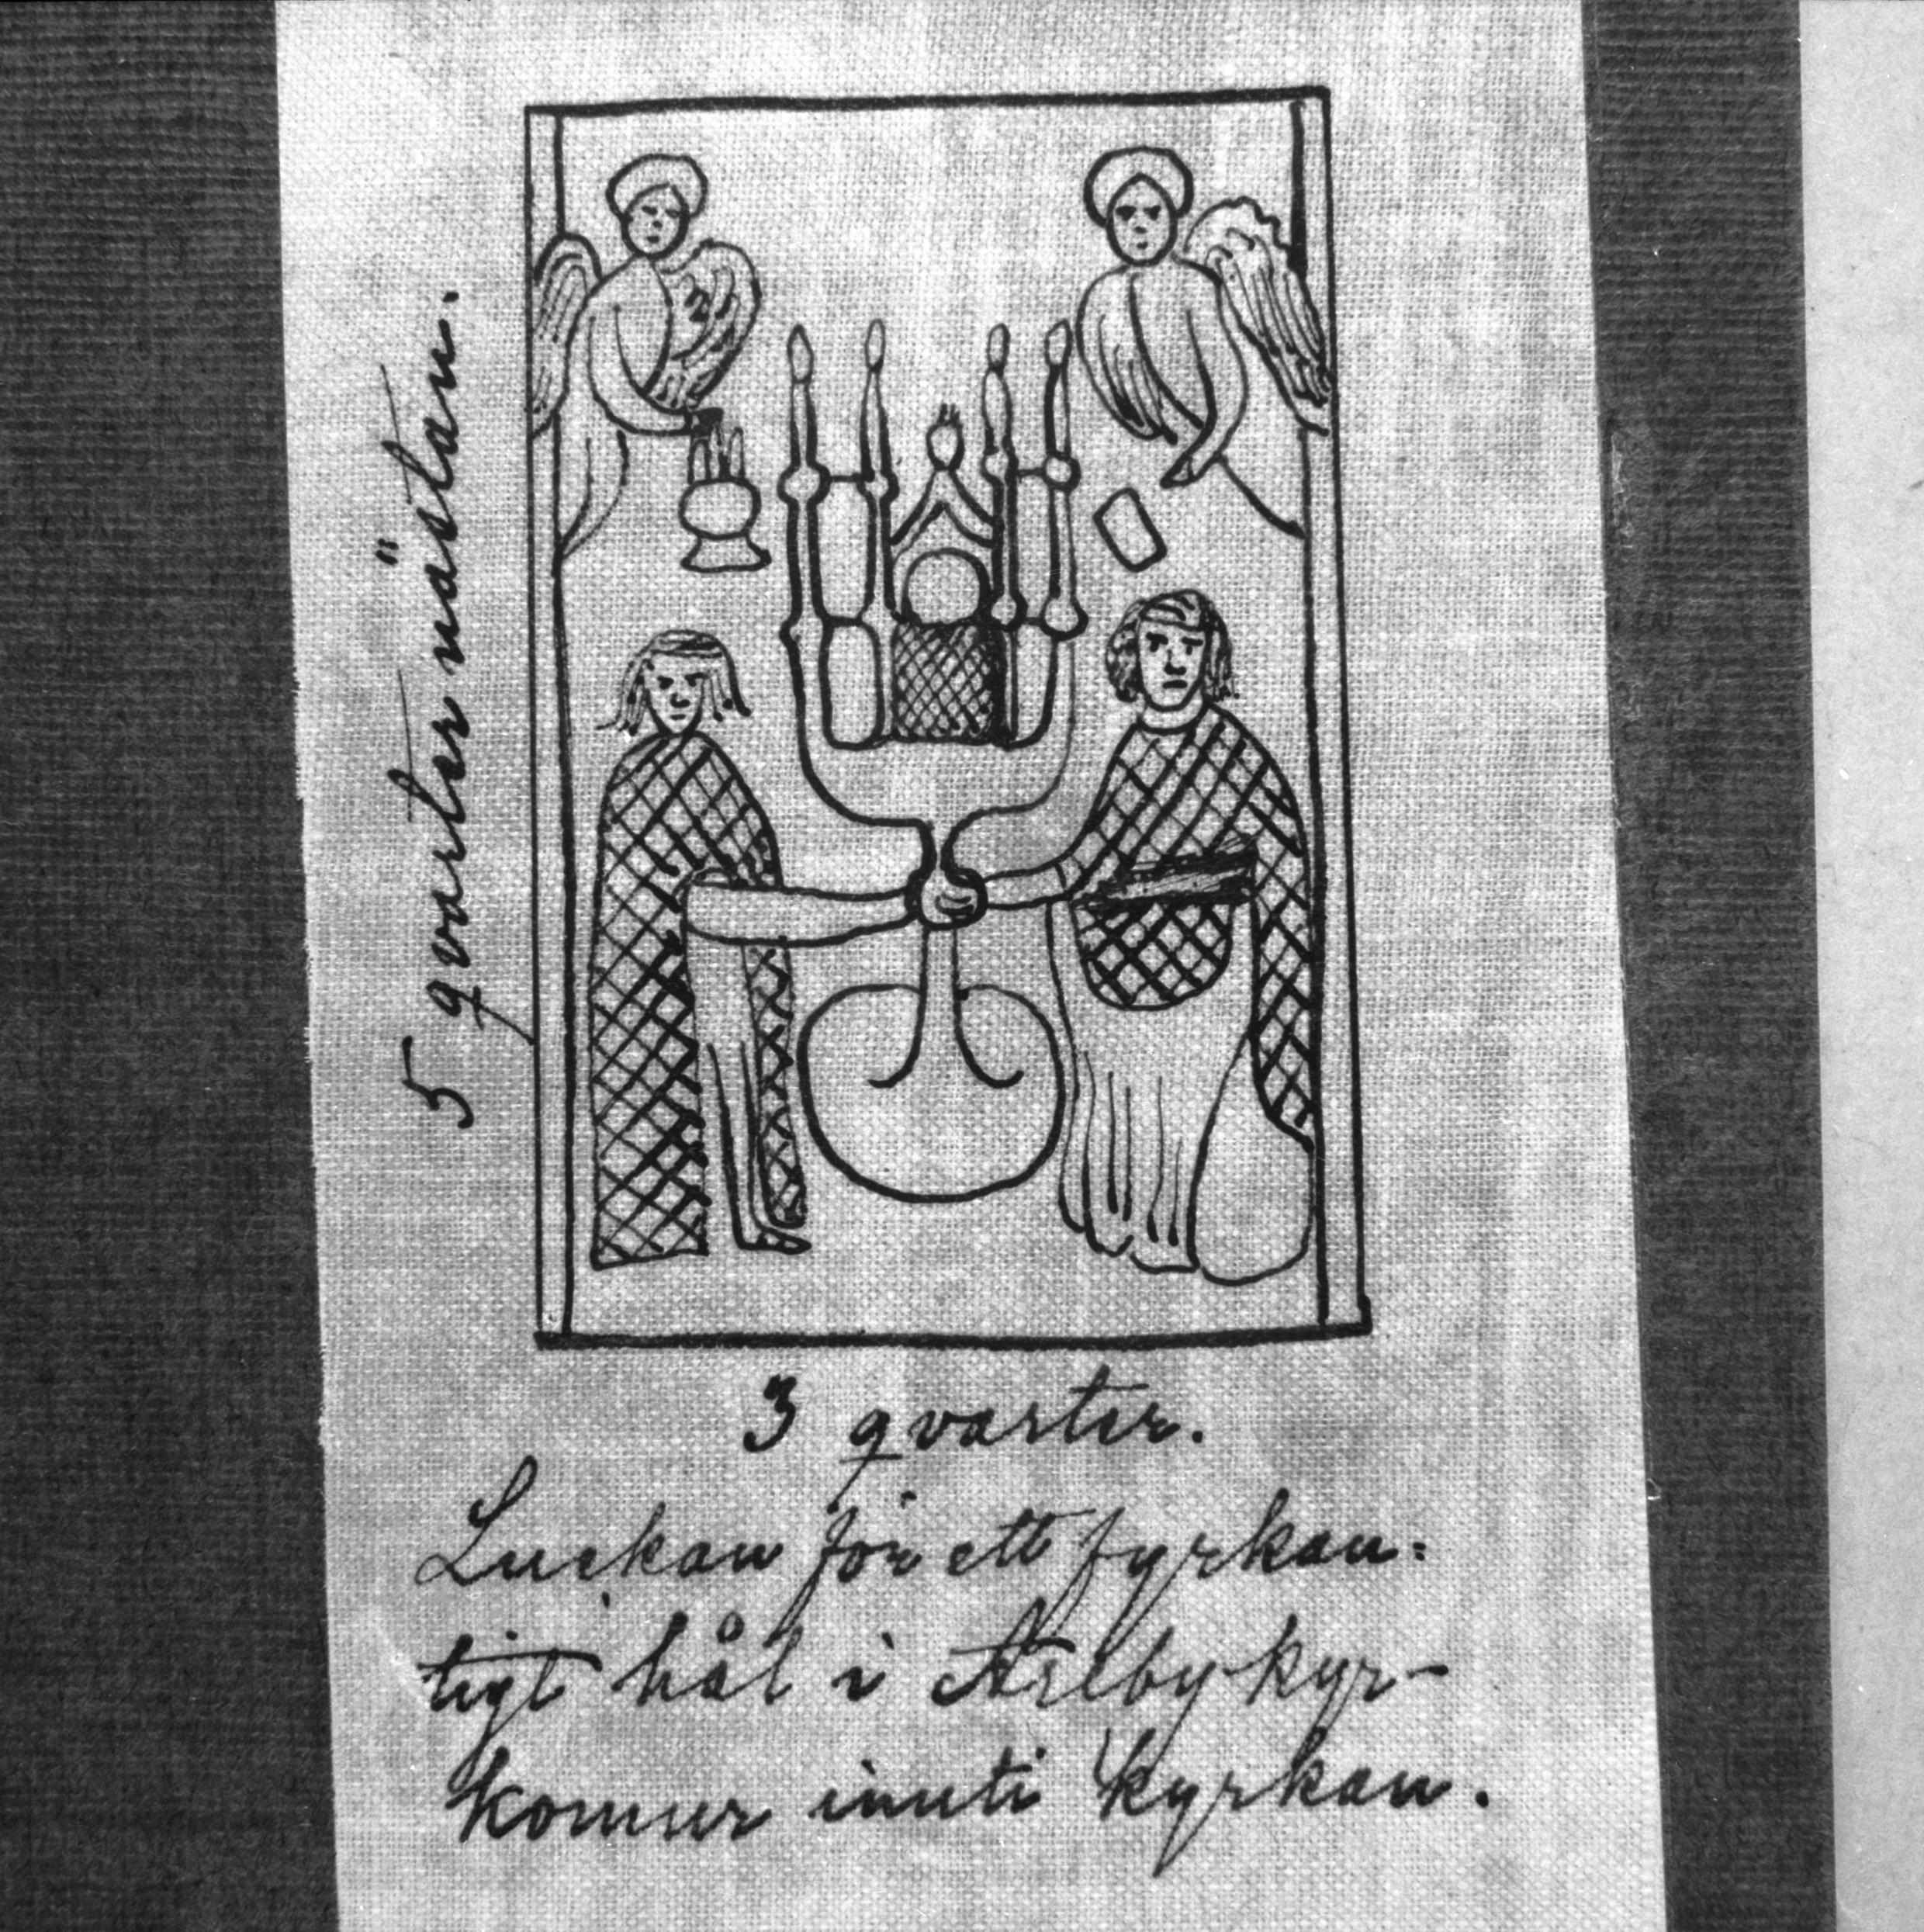 5 qvarter nästan.
3 qvarter.
Luckan för ett fyrkan:
tigt hål i Arlby kyr-
komur inuti kyrkan.